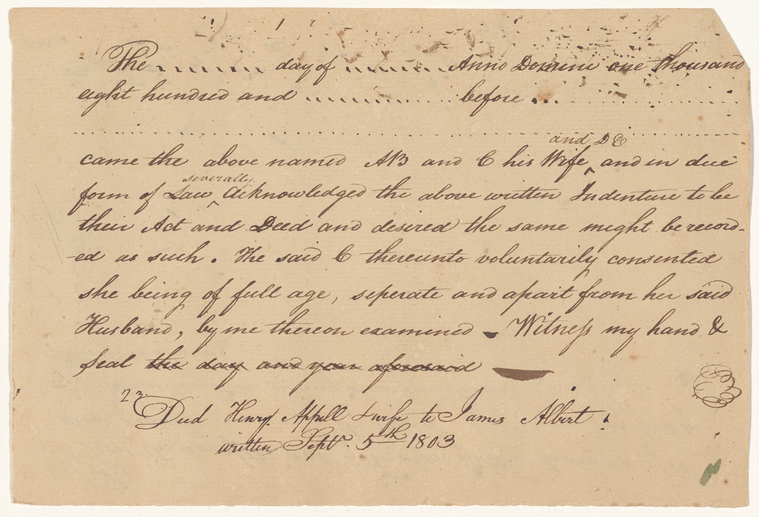 The ........ day of ........ Anno Domini one thousand
eight hundred and ........ before ...
and DE
came the above named AB and C his Wife ‸ and in due
severally
form of Law ‸ Acknowledged the above written Indenture to be
their Act and Deed and desired the same might be record-
-ed as such. The said C thereunto voluntarily consented
she being of full age, seperate and apart from her said
Husband, by me thereon examined – Witness my hand &
Seal the day and year aforesaid
2d Deed Henry Appell & wife to James Albert.
written Septr. 5th 1803